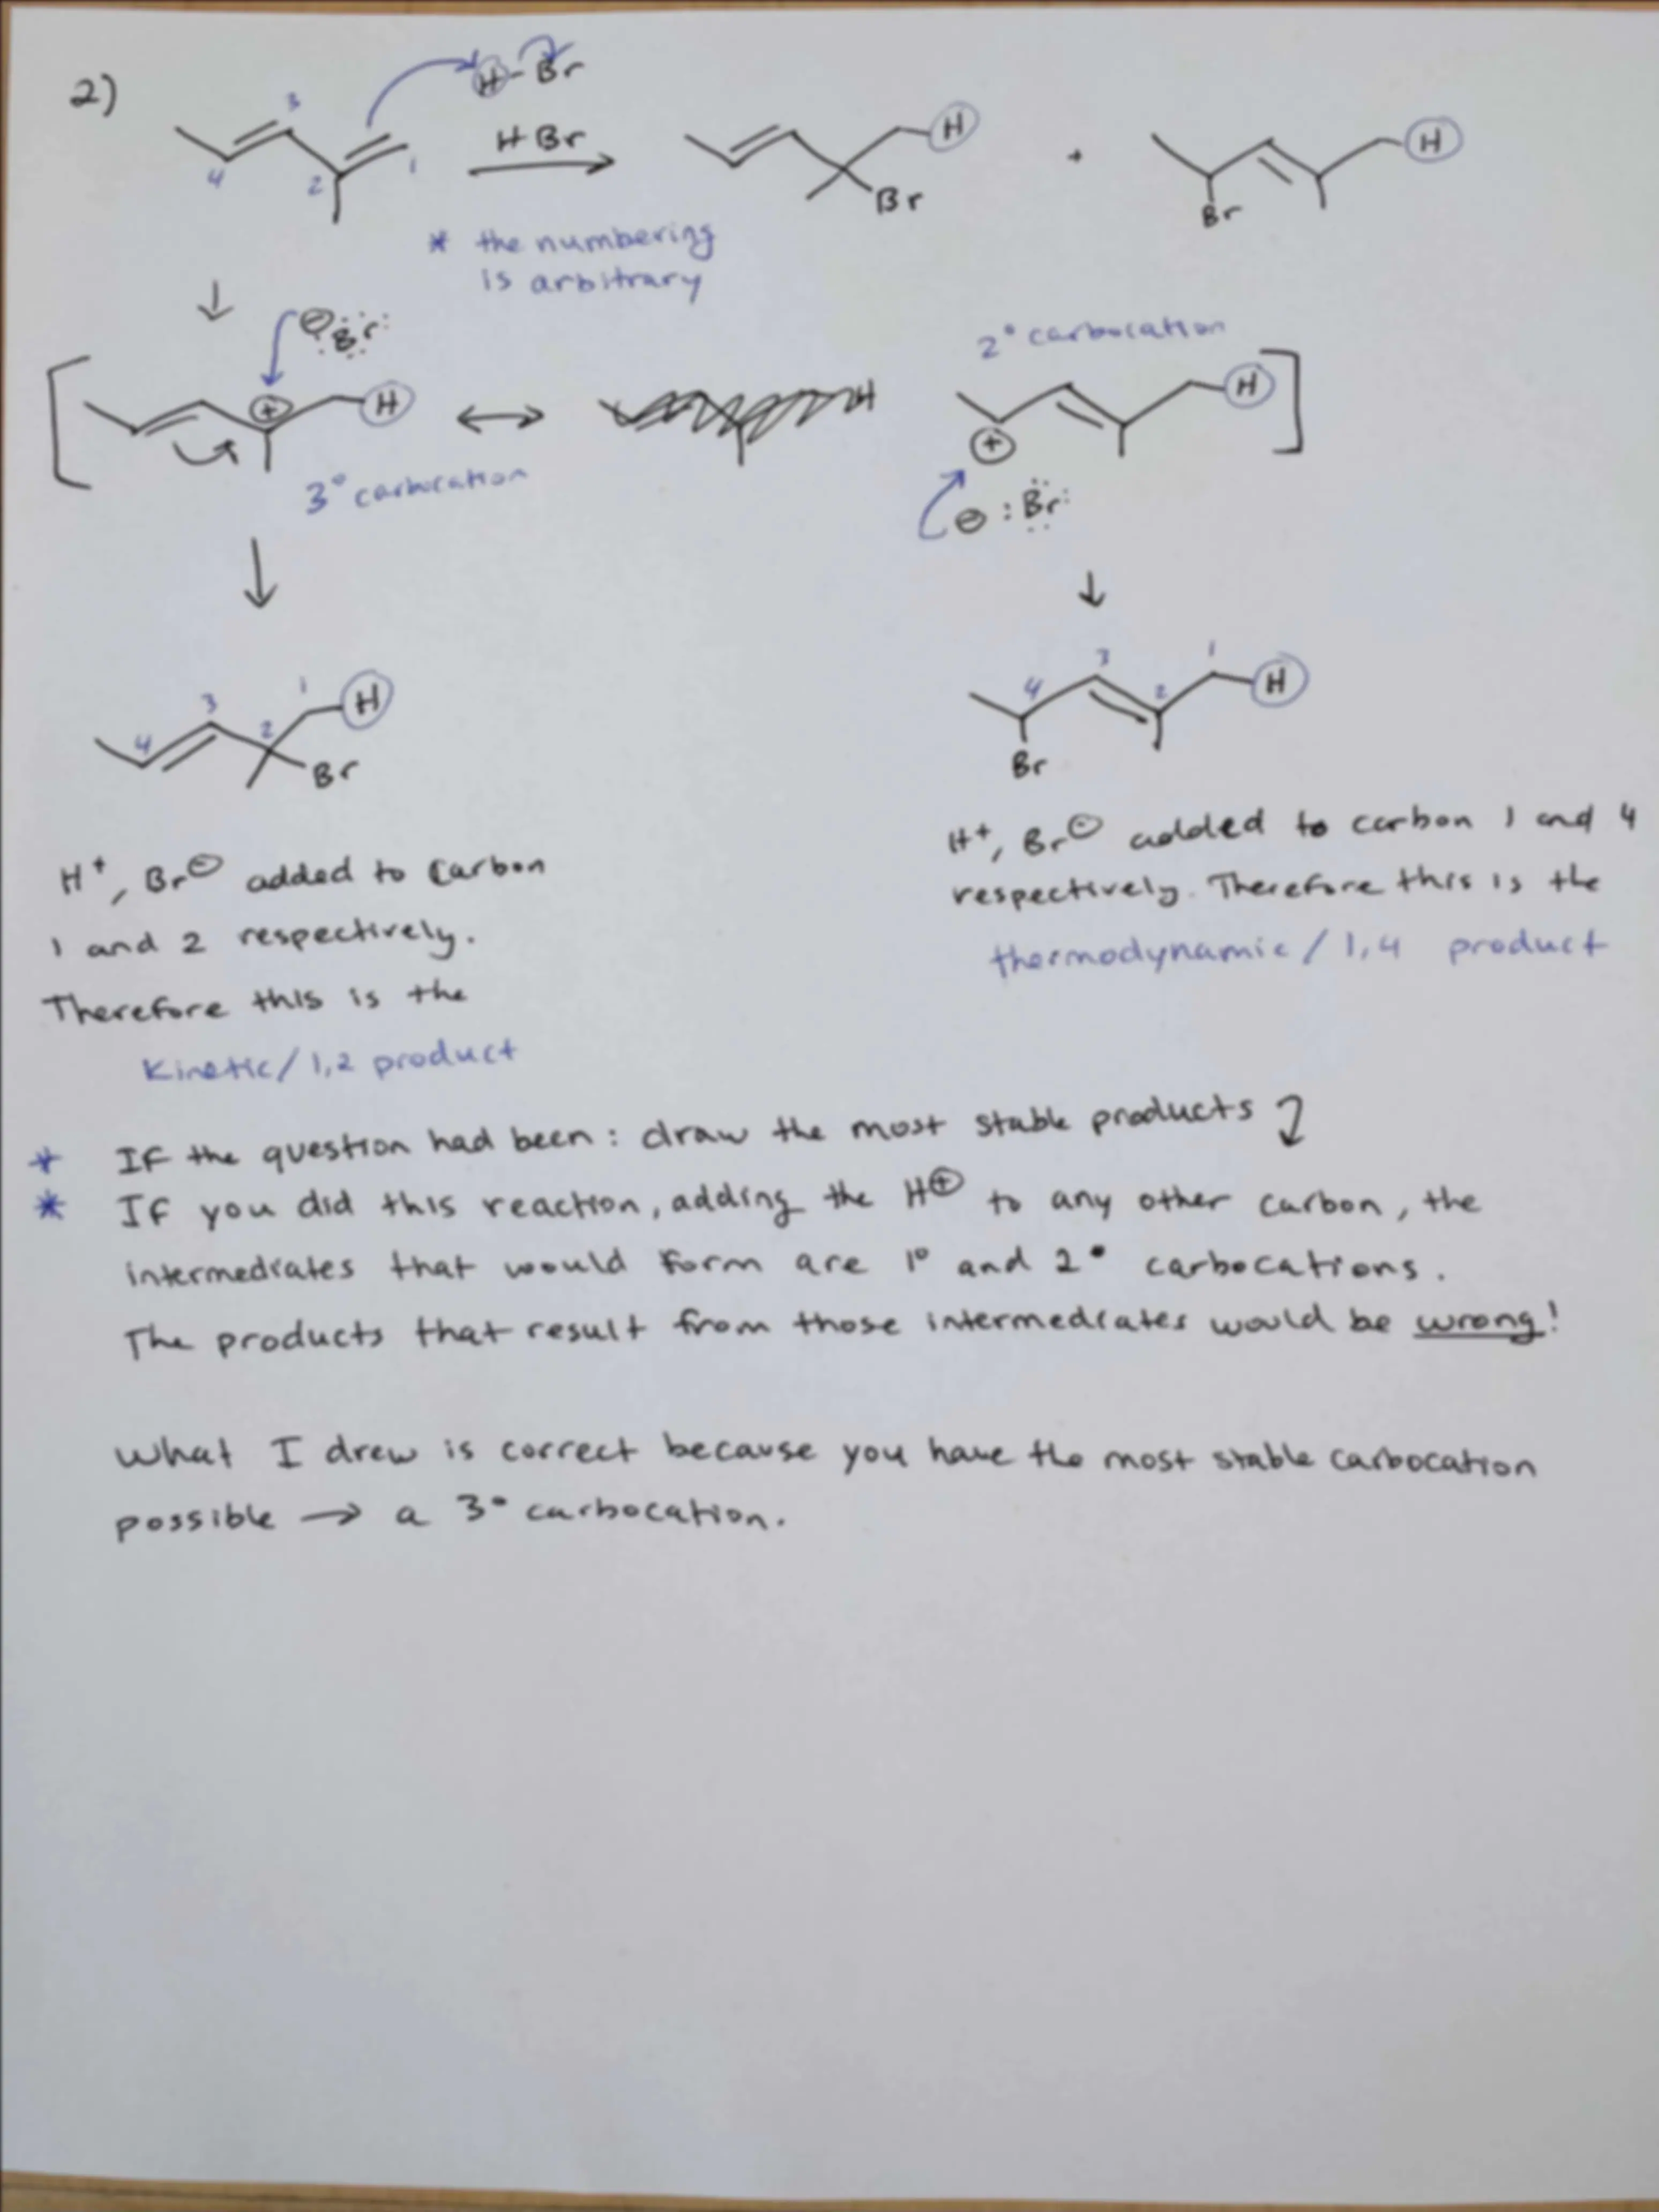 2)
H-Br
3
4
2
1
HBr
H
Br
+
Br
H
* the numbering
is arbitrary
⊖ :Br:
2° carbocation
⊕
H
H
⊕
H
3° carbocation
⊖ :Br:
4
3
2
1
H
Br
4
3
2
1
H
Br
H⁺, Br⊖ added to carbon
1 and 2 respectively.
Therefore this is the
Kinetic/1,2 product
H⁺, Br⊖ added to carbon 1 and 4
respectively. Therefore this is the
thermodynamic/1,4 product
* IF the question had been: draw the most stable products
* IF you did this reaction, adding the H⊕ to any other carbon, the
intermediates that would form are 1° and 2° carbocations.
The products that result from those intermediates would be wrong!
What I drew is correct because you have the most stable carbocation
possible → a 3° carbocation.